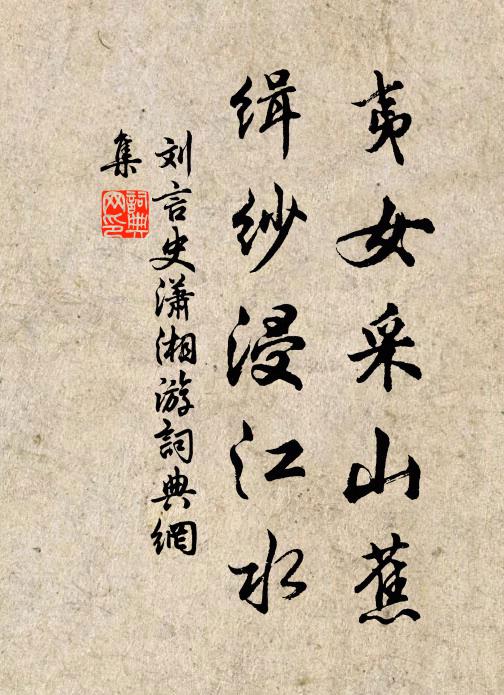 夷女采山蕉
缉纱浸江水
刘言史潇湘游詞典網
集
詞典网印